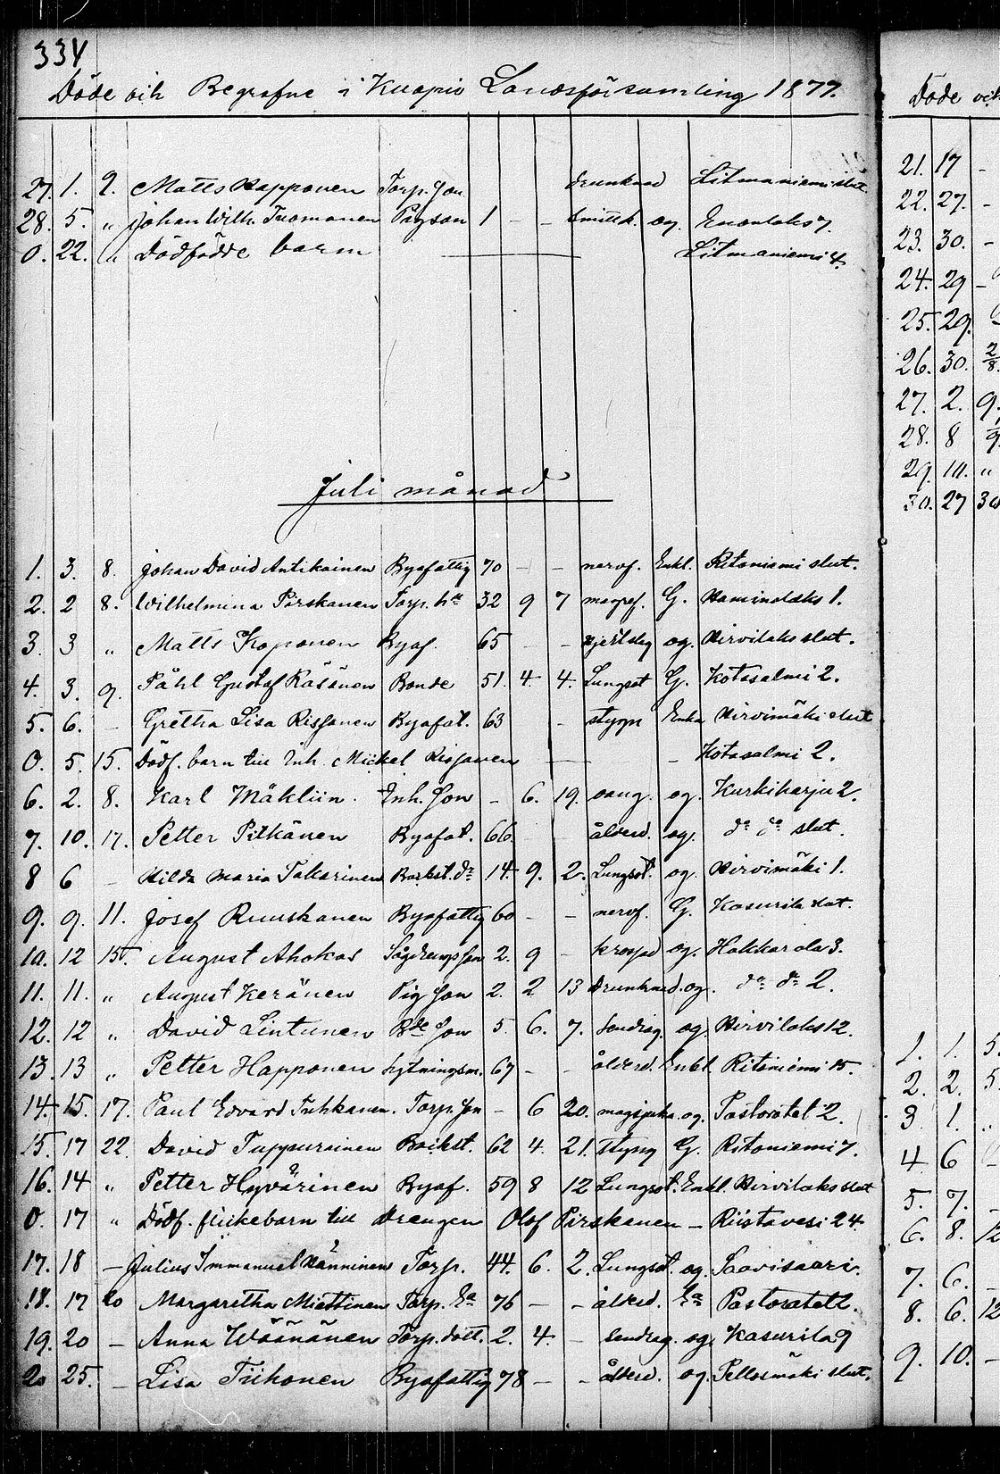 334
Döde och Begrafne i Kuopio Landsförsamling 1877.
27. 1. 9. Matts Kapponen Torp. Son drunknad Litmaniemi slut
28. 5. " Johan Wilh. Tuomanen Pigson 1 - - smittk. og. Enonlaks 7.
0. 22. " Dödfödde barn Litmaniemi 4.
Juli månad
1. 3. 8. Johan David Antikainen Byafattig 70 - - nervf. Enkl. Ritoniemi slut.
2. 2 8. Wilhelmina Pirskanen Torp. h. 32 9 7 G. Haminalaks 1.
3. 3 " Matts Koponen Byaf. 65 - og. Hirvilaks slut.
4. 3. 9. Påhl Gustaf Räsänen Bonde 51. 4 4. Lungsot G. Kotasalmi 2.
5. 6. - Gretha Lisa Rissanen Byafat. 63 - styng Enka Hirvimäki slut
0. 5. 15. Dödf. barn till Inh. Mickel Rissanen - Kotasalmi 2.
6. 2. 8. Karl Mäkliin. Inh. Son - 6. 19. og. Kurkiharju 2.
7. 10. 17. Petter Pitkänen Byafat. 66. ålderd. og. do do slut.
8 6 - Hilda Maria Takarinen Backst. dr 14. 9. 2. Lungsot. og. Hirvimäki 1.
9. 9. 11. Josef Ruuskanen Byafattig 60 - - nervf. G. Kasurila slut.
10. 12 15. August Ahokas Son 2. 9 - og. Hakkarala 3.
11. 11. " August Keränen Pig Son 2. 2 13 Drunknad. og. do do 2.
12. 12 " David Lintunen Bde Son 5. 6. 7. og. Hirvilaks 12.
13. 13 " Petter Happonen 67 - - ålderd. Enkl. Ritoniemi 15.
14. 15. 17. Paul Edvard Tuhkanen. Torp. Son - 6 20. og. Pastoratet 2.
15. 17 22. David Tuppurainen Backst. 62 4. 21. styng G. Ritoniemi 7.
16. 14 " Petter Hyvärinen Byaf. 59 8 12 Lungsot. Enkl. Hirvilaks slut
0. 17 " Dödf. flickebarn till Drengen Olof Pirskanen - Riistavesi 24
17. 18 - Julius Immanuel Hänninen Torp. 44. 6. 2. Lungsot. og. Saavisaari.
18. 17 20 Margaretha Miettinen Torp. Ea 76 - - ålderd. Ea Pastoratet 2.
19. 20 - Anna Wäänänen Torp. dott. 2. 4 - og. Kasurila 9
20 25. - Lisa Tiihonen Byafattig 78 - - ålderd. og. slut.
Döde och
21. 17 -
22. 27. -
23. 30. -
24. 29 -
25. 29.
26. 30. 2/8.
27. 2. 9.
28. 8
29. 10. "
30. 27 30
1. 1. 5.
2. 2. 5.
3 1. "
4 6 -
5. 7. -
6. 8. 12
7. 6. -
8. 6. 12
9. 10. -